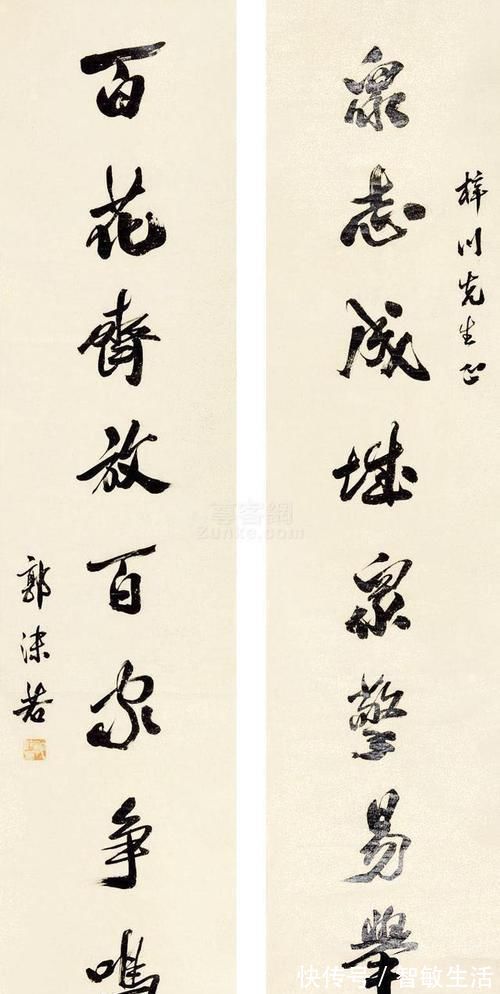 梓川先生正
衆志成城衆擎易舉
百花齊放百家争鳴
郭沫若
尊客網
Zunke.com
快传号/智敏生活